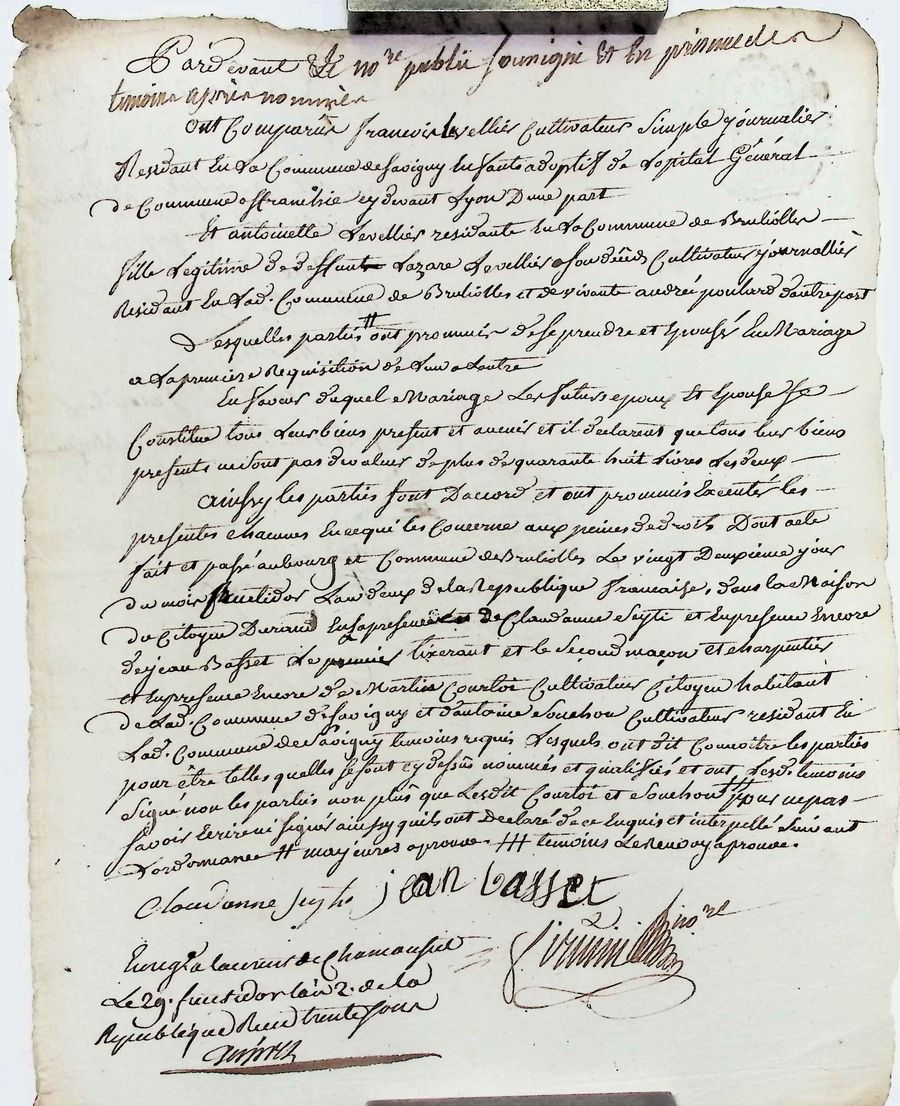 Pardevant le no.re publiè sousignè et En presence de
temoins après nommès
ont Comparus francois levelliès Cultivateur Simple journalier
Residant En la Commune de Savigny Enfants adoptif de Lopital Général
de Commune affranchie cy devant Lyon Dune part
Et antoinette Levelliès residante En la Commune de Brulliolles
fille Legitime de deffunt Lazare Levelliès Cultivateur journalliès
Residant En lad. Commune de Brulioles et de vivante andreé poulard dautre part
Lesquelles partiès # ont prommis de se prendre et Epousér En Mariage
a la premiere Requisition de Lun a Lautre
En faveur duquel Mariage Les futurs epoux Et Epouse Se
Constitue tous Leurs biens present et avenir et il declarent que tous leur biens
presents ne sont pas de valeur de plus de quarante huit Livres Les deux
ainssy les parties sont Daccord et ont prommis Executér les
presentes chacunes En ce qui les Concerne aux peines de droits Dont acte
fait et passé au bourg et Commune de Brulioles Le vingt Deuxième jour
du mois fructidor Lan deux de la Republique francaise, dans la Maison
du Citoyen Durand En la presence de Claudanne Seyti et En presence Encore
de jean Basset Le premier tixerant et le Second maçon et charpentier
et En presence Encore de Martin Courtoi Cultivateur Citoyen habitant
de Lad. Commune de Savigny et dantoine Souchon Cultivateur residant En
Lad. Commune de Savigny temoins requis Lesquels ont dit Connoitre les parties
pour être telles quelles se sont cy dessus nommés et qualifiés et ont Lesd. temoins
Signé non les parties non plus que Lesdit Courtoi et Souchon ### pour ne pas
Savoir Ecrire ni signér ainssy quils ont Declaré de ce Enquis et interpellé Suivant
Lordonnance # majeures aprouvé. ### temoins Le Renvoy aprouvé.
Claudanne jean basset
no.re
Enreg.é a
Le 29. fructidor lan 2. de la
Republique Recu trente sous